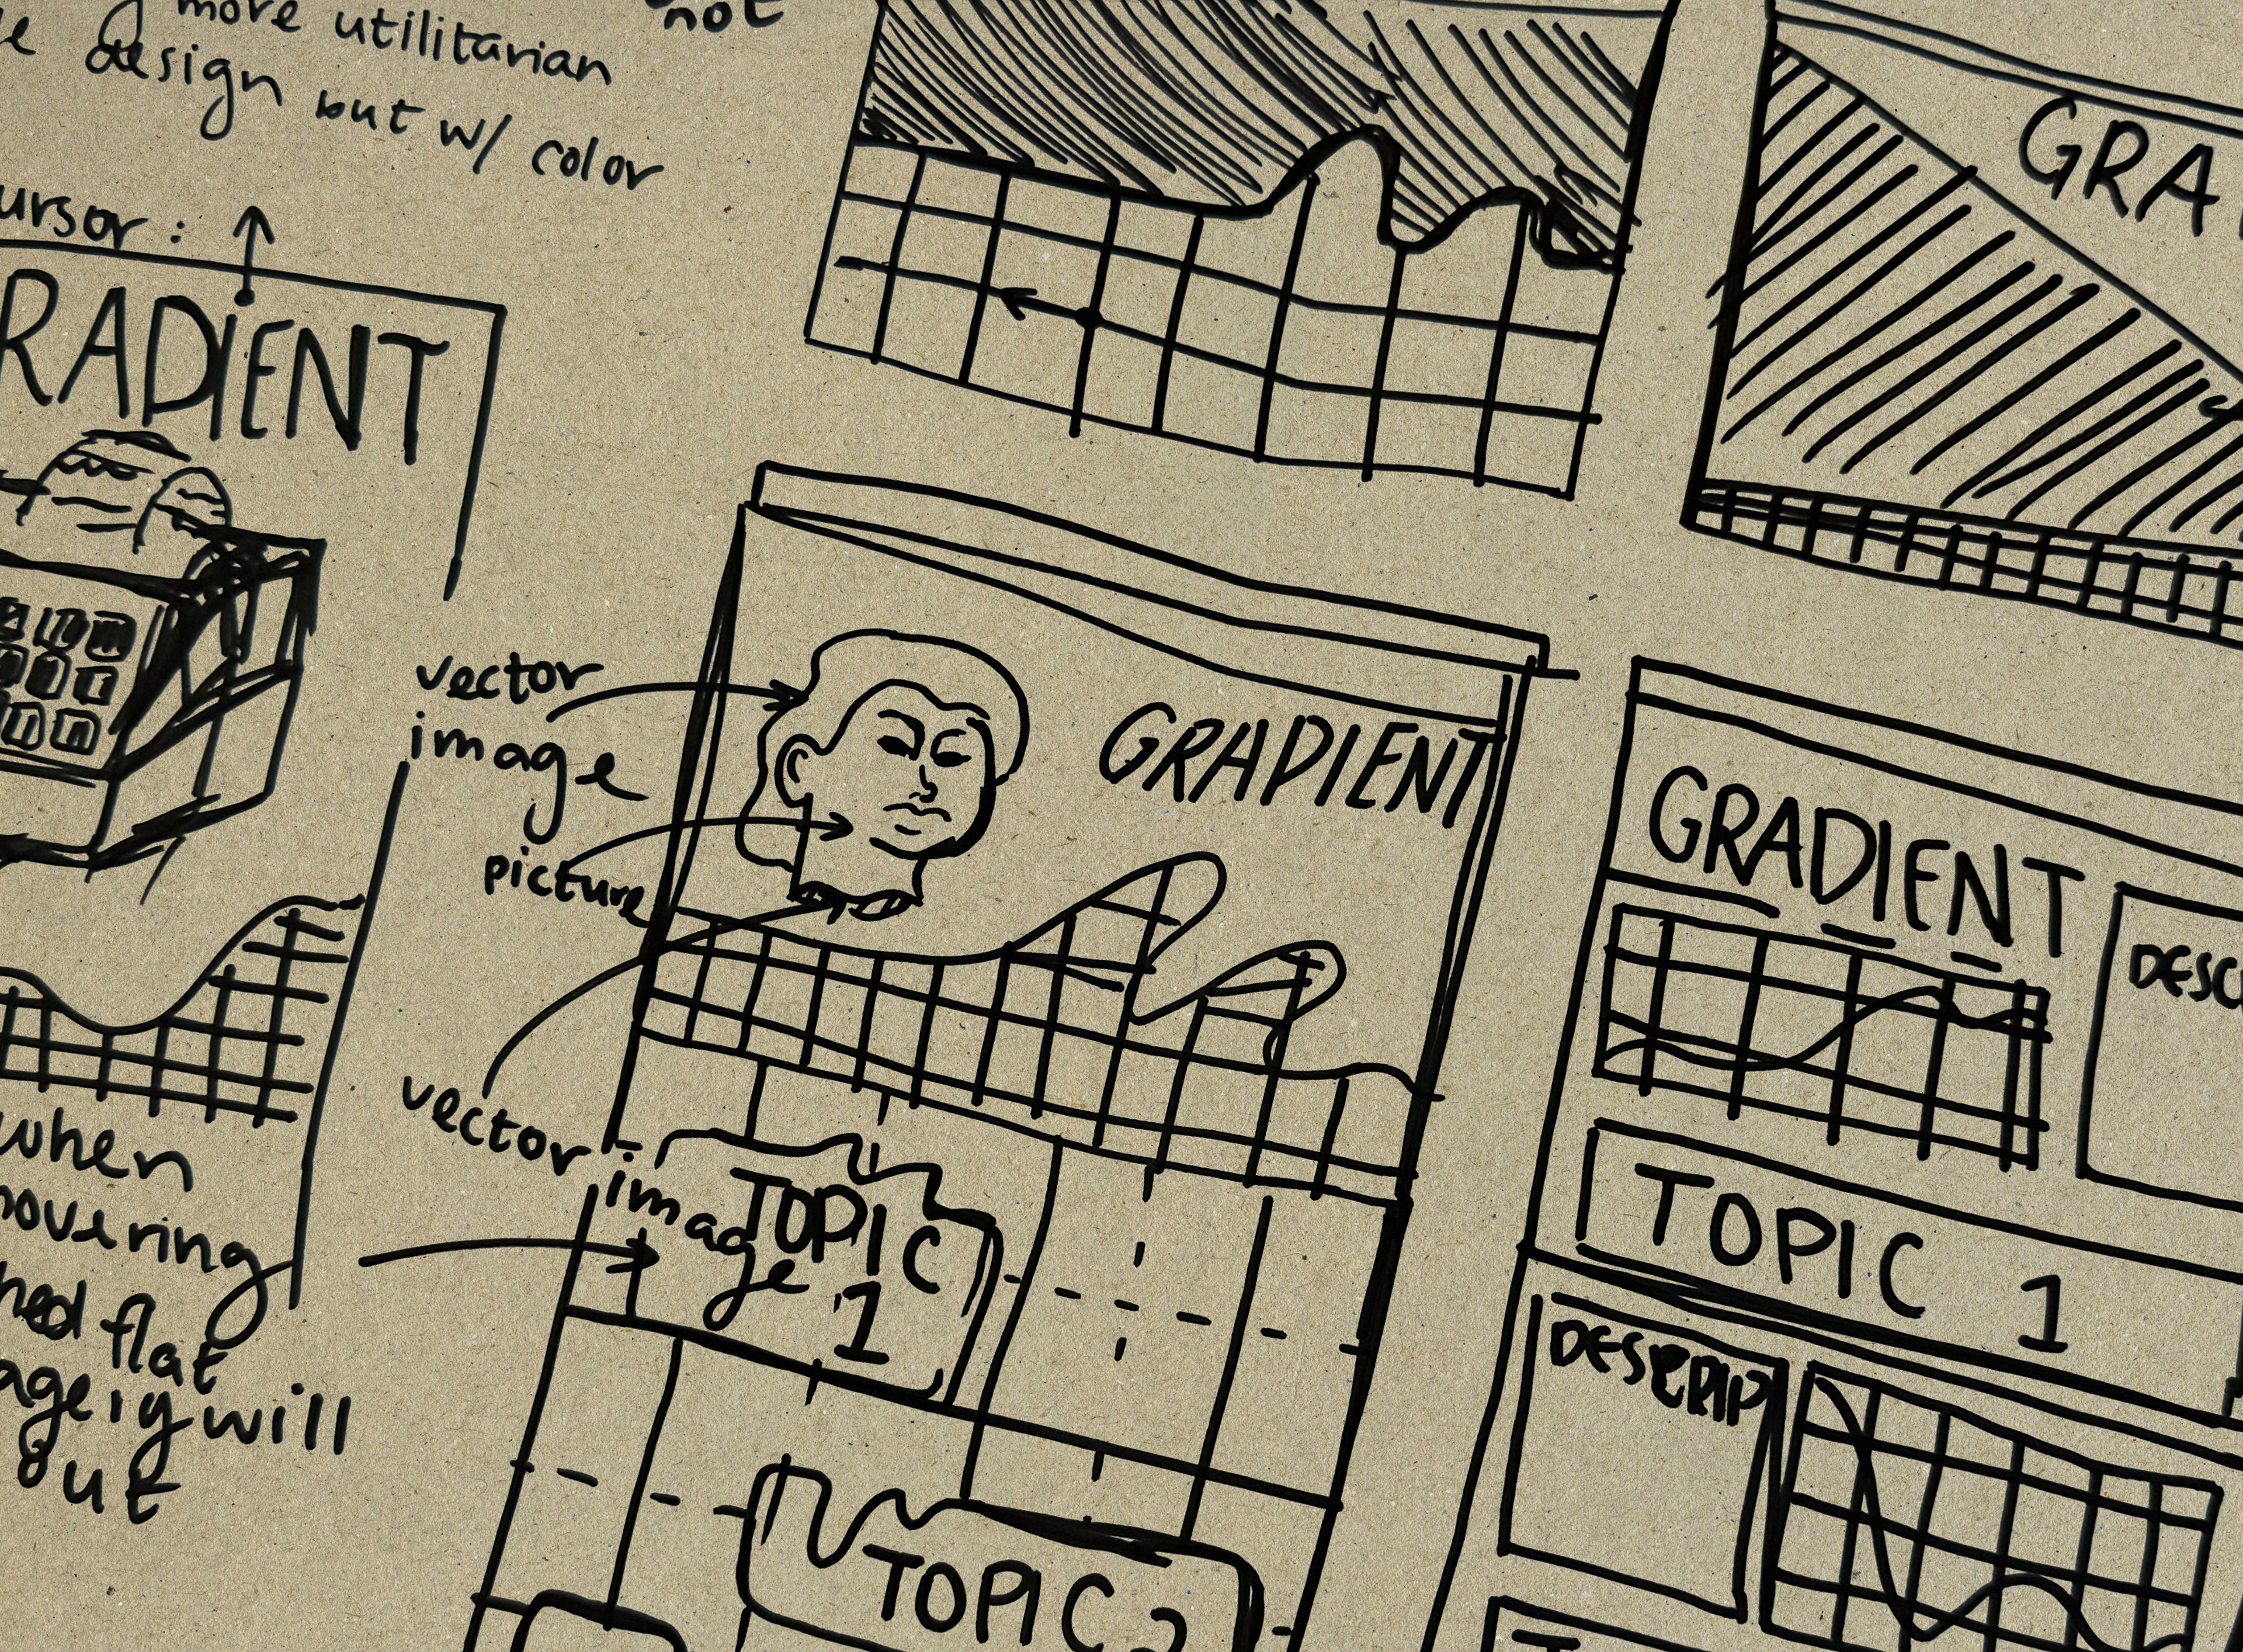 more utilitarian
design but w/ color
not
ursor:
RADIENT
GRA
vector
image
picture
GRADIENT
vector
image
TOPIC
1
TOPIC 2
when
hovering
flat
will
out
GRADIENT
DESC
TOPIC 1
DESCRIP
T